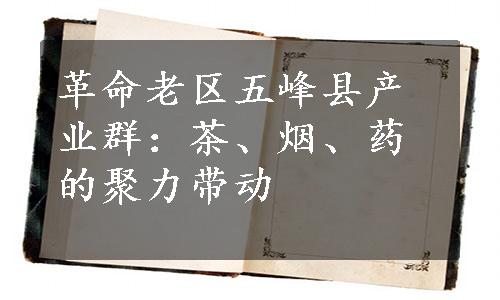 革命老区五峰县产
业群：茶、烟、药
的聚力带动